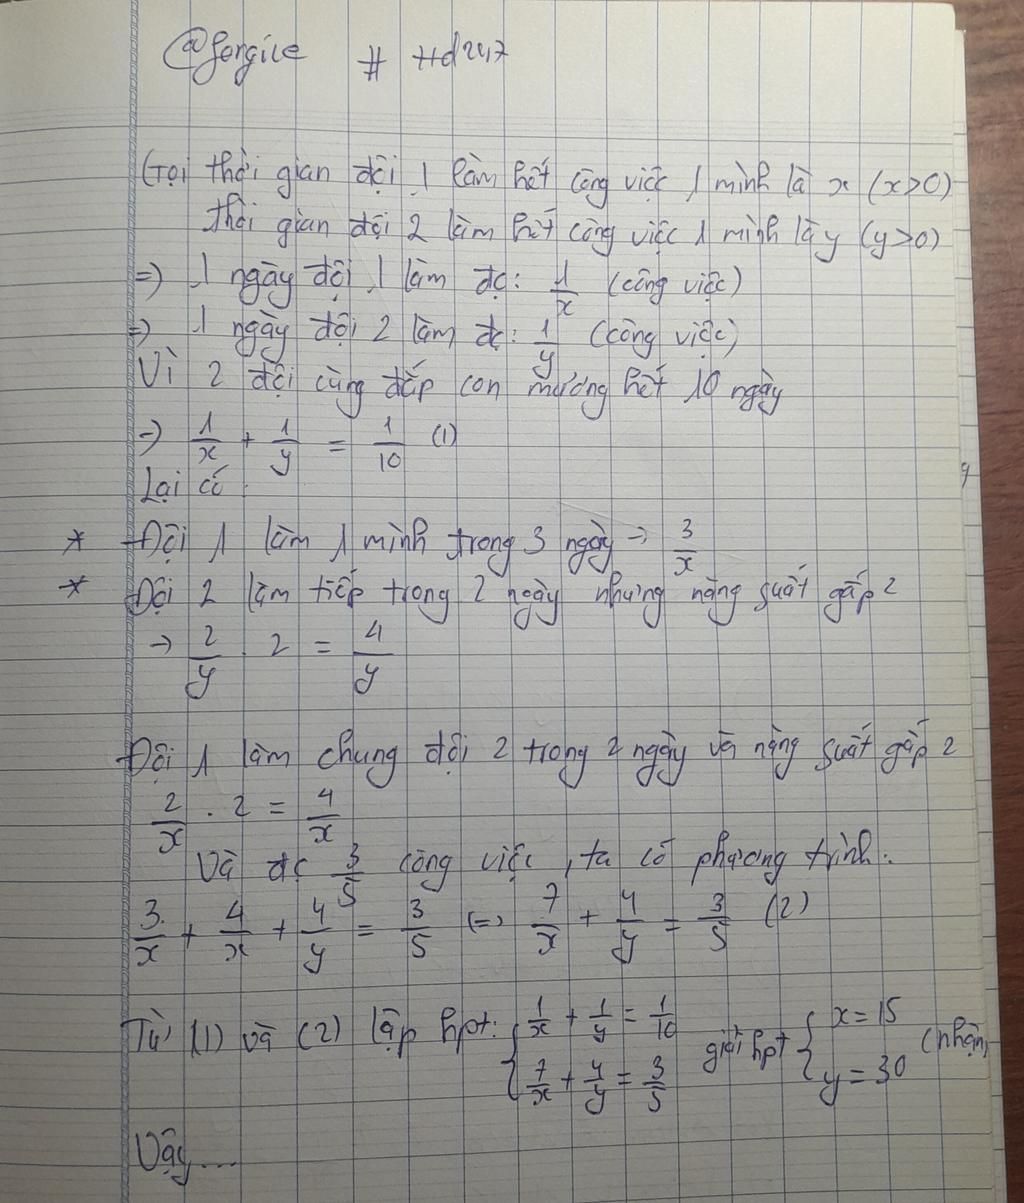 @forgive # Hd247
Gọi thời gian đội 1 làm hết công việc 1 mình là x (x>0)
thời gian đội 2 làm hết công việc 1 mình là y (y>0)
=> 1 ngày đội 1 làm đc: 1/x (công việc)
=> 1 ngày đội 2 làm đc: 1/y (công việc)
Vì 2 đội cùng đắp con mương hết 10 ngày
=> 1/x + 1/y = 1/10 (1)
Lại có
* Đội 1 làm 1 mình trong 3 ngày -> 3/x
* Đội 2 làm tiếp trong 2 ngày nhưng năng suất gấp 2
-> 2/y . 2 = 4/y
Đội 1 làm chung đội 2 trong 2 ngày và năng suất gấp 2
2/x . 2 = 4/x
Và đc 3/5 công việc, ta có phương trình:
3/x + 4/x + 4/y = 3/5 (=) 7/x + 4/y = 3/5 (2)
Từ (1) và (2) lập hpt: { 1/x + 1/y = 1/10 giải hpt { x = 15 (nhận)
7/x + 4/y = 3/5 y = 30
Vậy....